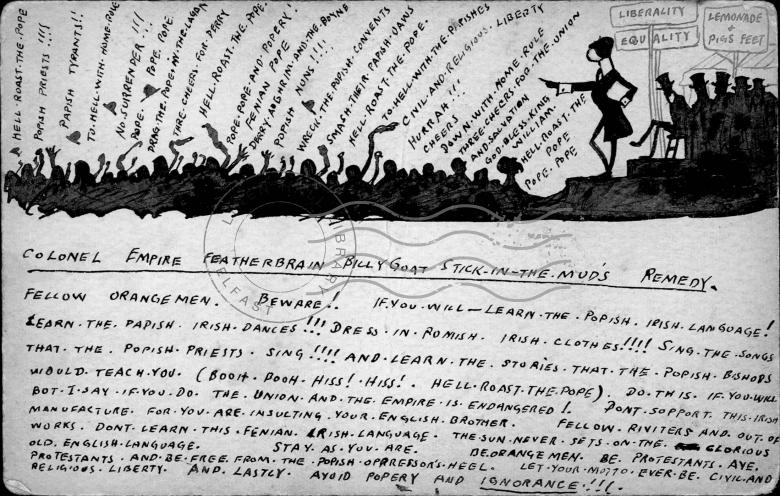 HELL·ROAST·THE·POPE
POPISH PRIESTS !!!!
PAPISH TYRANTS!!
TO·HELL·WITH·HOME·RULE
NO·SURRENDER·!!!
POPE. POPE. POPE.
DRAG·THE·POPE·IN·THE·LAGAN
THRE·CHEERS·FOR·PERRY
HELL·ROAST·THE·POPE.
POPE·POPE·AND·POPERY!
FENIAN POPE
DERRY·AUGHRIM·AND·THE·BOYNE
POPISH NUNS!!!!
WRECK·THE·POPISH·CONVENTS
SMASH·THEIR·PAPISH·JAWS
HELL·ROAST·THE·POPE.
TO·HELL·WITH·THE·PAPISHES
CIVIL·AND·RELIGIOUS·LIBERTY
HURRAH !!·
CHEERS
DOWN·WITH·HOME RULE
THREE·CHEERS·FOR·THE·UNION
AND·SALVATION
GOD·BLESS·KING
WILLIAM.
HELL·ROAST·THE
POPE
POPE. POPE
LIBERALITY
EQUALITY
LEMONADE
+
PIGS FEET
LIBRARY
BELFAST
COLONEL EMPIRE FEATHERBRAIN BILLYGOAT STICK-IN-THE-MUD'S REMEDY.
FELLOW ORANGEMEN. BEWARE!! IF·YOU·WILL—LEARN·THE·POPISH·IRISH·LANGUAGE!
LEARN·THE·PAPISH·IRISH·DANCES!!! DRESS·IN·ROMISH·IRISH·CLOTHES!!!! SING·THE·SONGS
THAT·THE·POPISH·PRIESTS·SING!!!! AND·LEARN·THE·STORIES·THAT·THE·POPISH·BISHOPS
WOULD·TEACH·YOU. (BOOH·POOH·HISS!·HISS!. HELL·ROAST·THE·POPE). DO·THIS·IF·YOU·WILL
BOT·I·SAY·IF·YOU·DO·THE·UNION·AND·THE·EMPIRE·IS·ENDANGERED!. DONT·SUPPORT·THIS·IRISH
MANUFACTURE·FOR·YOU·ARE·INSULTING·YOUR·ENGLISH·BROTHER. FELLOW·RIVITERS·AND·OUT·OF
WORKS. DONT·LEARN·THIS·FENIAN·IRISH·LANGUAGE. THE·SUN·NEVER·SETS·ON·THE GLORIOUS
OLD·ENGLISH·LANGUAGE. STAY·AS·YOU·ARE. BE·ORANGEMEN. BE PROTESTANTS. AYE.
PROTESTANTS·AND·BE·FREE·FROM·THE·POPISH·OPPRESSOR'S·HEEL. LET·YOUR·MOTTO·EVER·BE·CIVIL·AND
RELIGIOUS·LIBERTY. AND·LASTLY. AVOID POPERY AND IGNORANCE·!!!(.